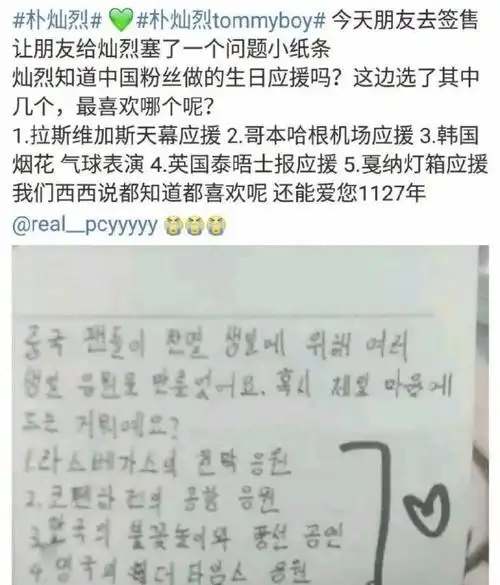 #朴灿烈# 💚#朴灿烈tommyboy# 今天朋友去签售
让朋友给灿烈塞了一个问题小纸条
灿烈知道中国粉丝做的生日应援吗？这边选了其中
几个，最喜欢哪个呢？
1.拉斯维加斯天幕应援 2.哥本哈根机场应援 3.韩国
烟花 气球表演 4.英国泰晤士报应援 5.戛纳灯箱应援
我们西西说都知道都喜欢呢 还能爱您1127年
@real__pcyyyyy 😭😭😭
중국 팬들이 찬열 생일에 위해 여러
생일 응원로 만들었어요. 혹시 제일 마음에
드는 거뭐예요?
1.라스베가스의 천막 응원
2.코펜하겐의 공항 응원
3.한국의 불꽃놀이와 풍선 공연
4.영국의 더타임스 응원